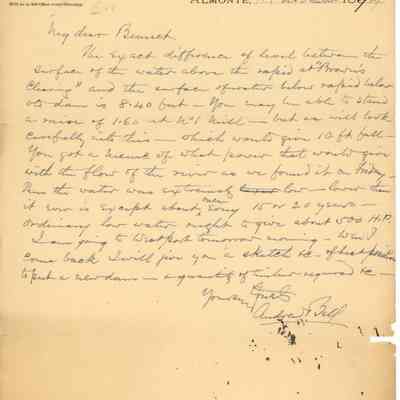 ALMONTE,
My dear Bennett
The exact difference of level between the
surface of the water above the rapid at "Brown's
Clearing" and the surface of water below rapid below
old dam is 8.40 feet - You may be able to stand
a raise of 1.60 at No 1 Mill - but we will look
carefully into this - which would give 10 ft fall -
You got a memo of what power that would give
with the flow of the river as we found it on Friday -
Then the water was extremely low - lower than
it ever is except about once every 15 or 20 years -
Ordinary low water ought to give about 500 H.P.
I am going to Westport tomorrow morning - When I
come back I will give you a sketch &c of best position
to put a new dam - a quantity of timber required &c -
Yours truly
Andrew Bell